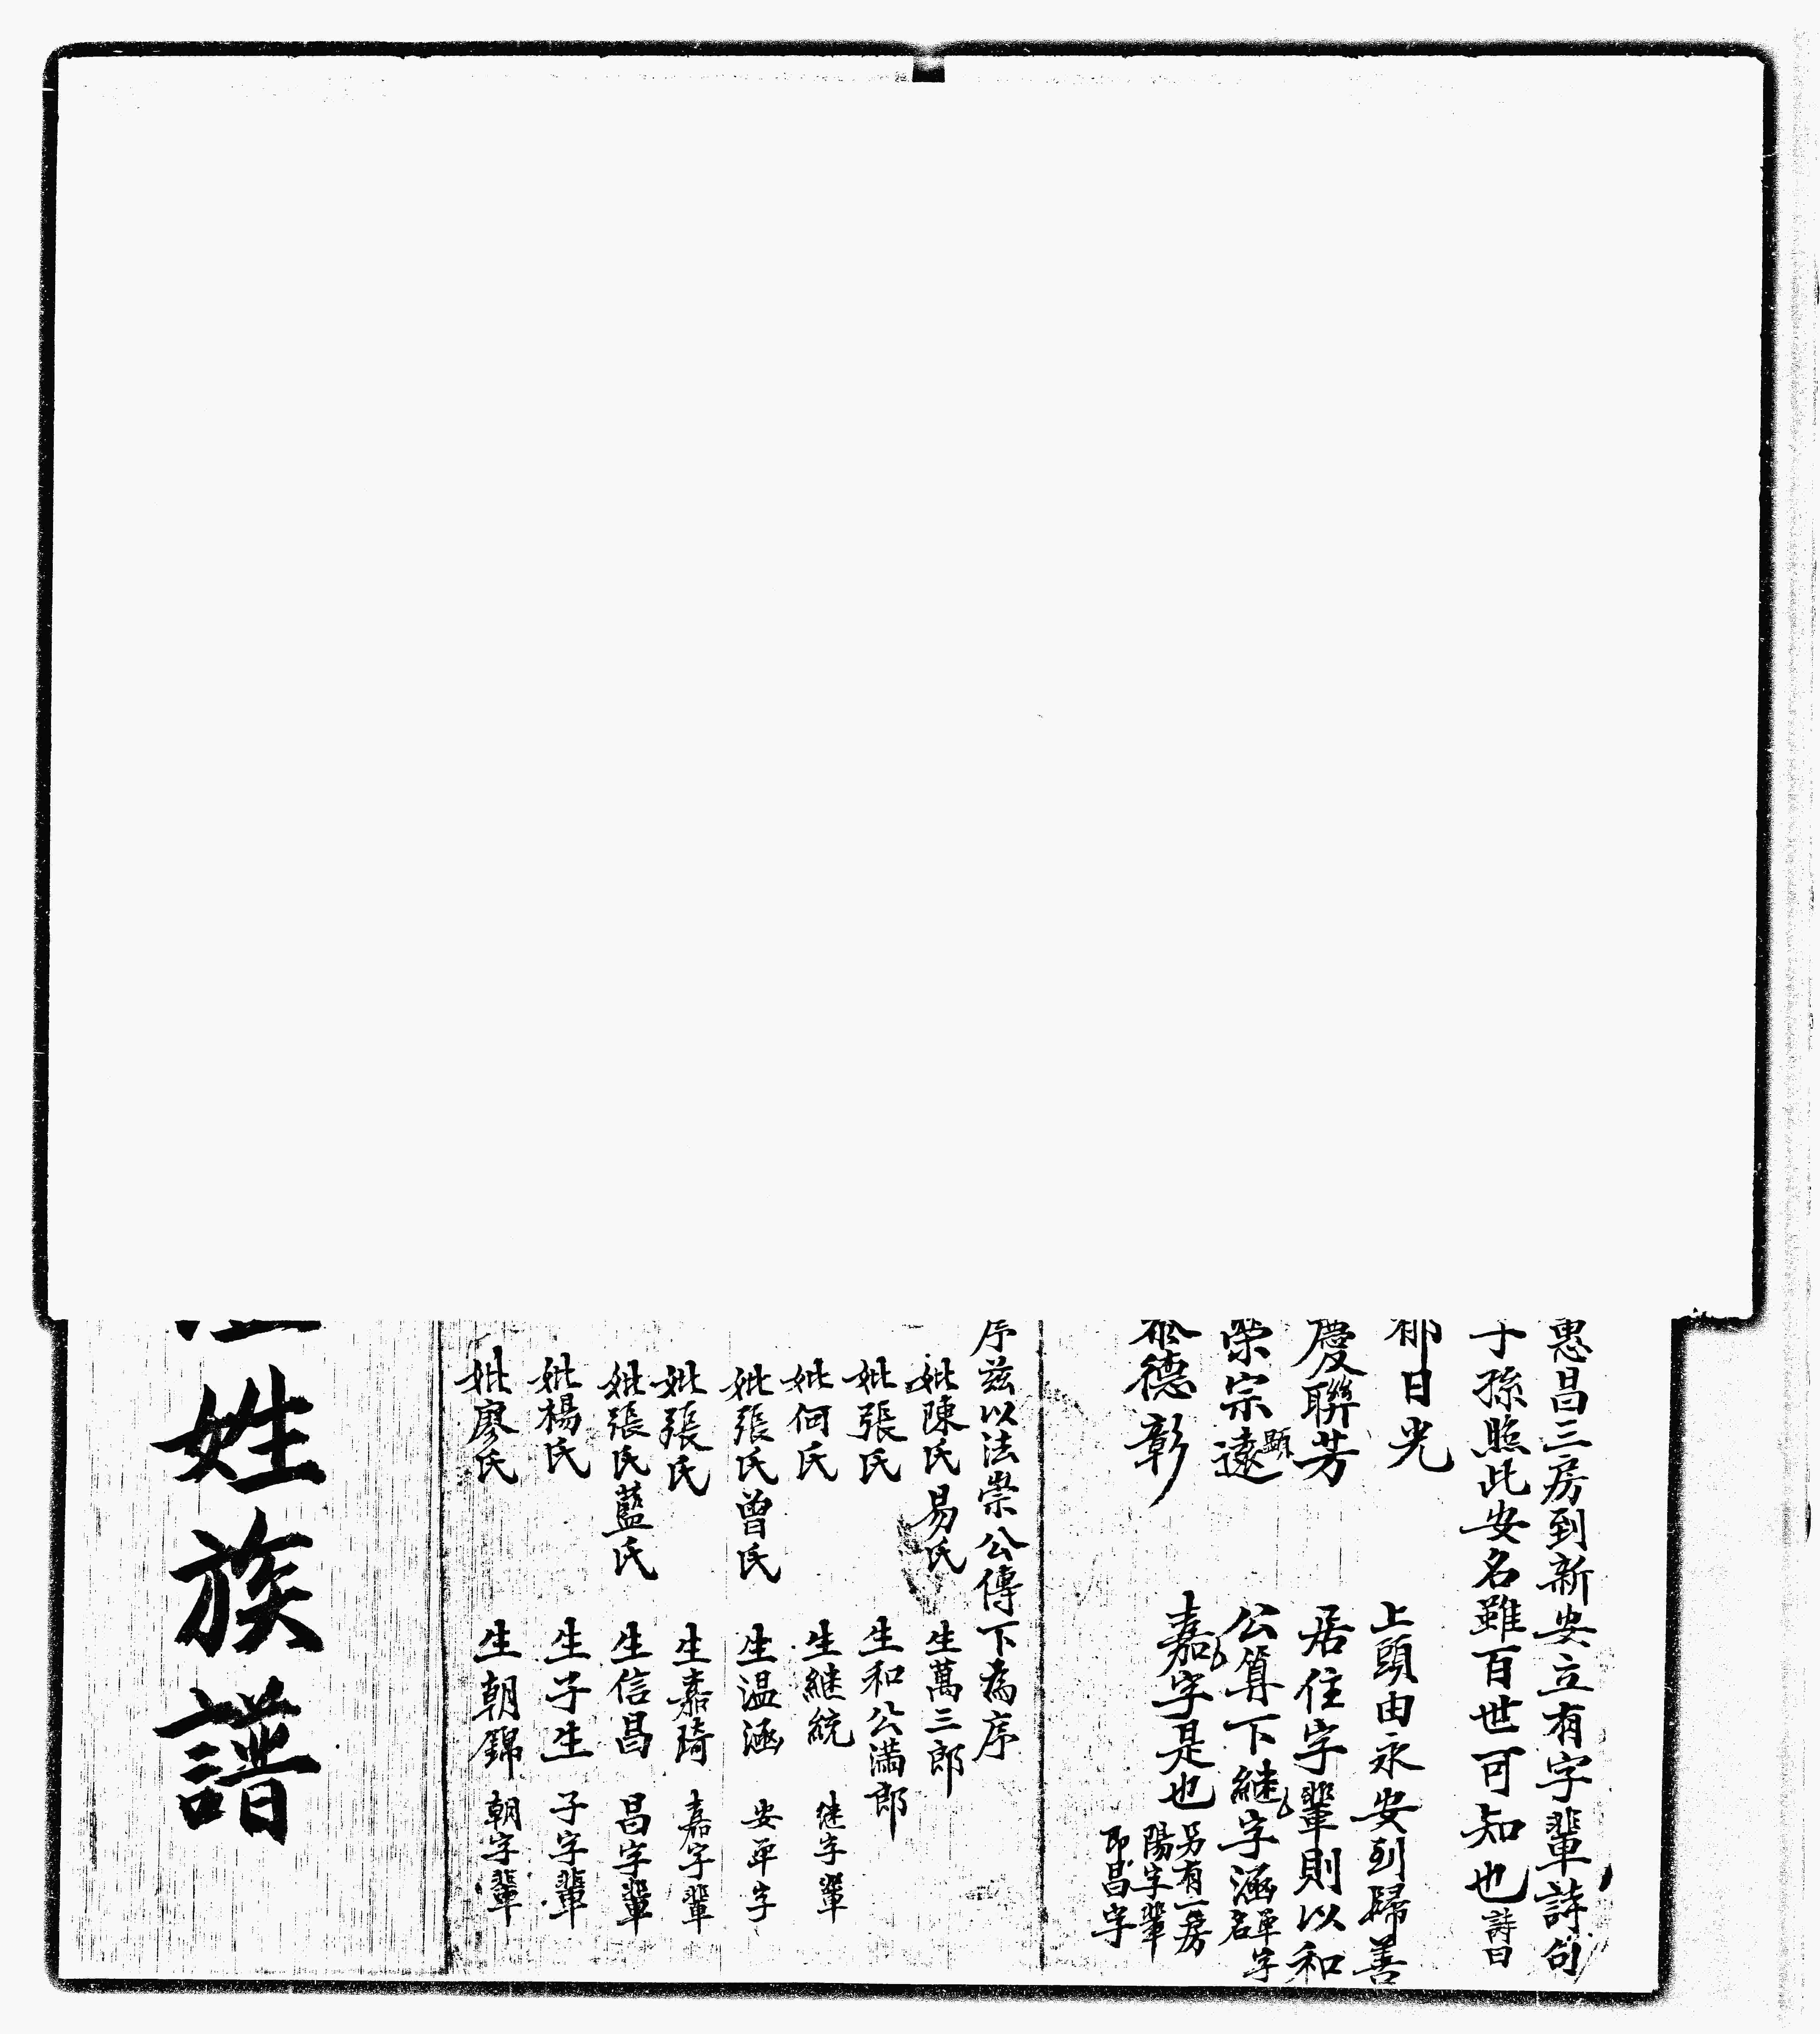 惠昌三房到新安立有字輩詩句
子孫照此安名雖百世可知也詩曰
日光
上頭由永安到歸善
慶聯芳
居住字輩則以和
榮宗遠顯
公算下継字涵單字名
德彰
嘉字是也另有一房陽字輩即昌字
序茲以法崇公傳下為序
妣陳氏易氏 生萬三郎
妣張氏 生和公滿郎
妣何氏 生継統 継字輩
妣張氏曾氏 生温涵 安单字
妣張氏 生嘉琦 嘉字輩
妣張氏藍氏 生信昌 昌字輩
妣楊氏 生子生 子字輩
妣廖氏 生朝錦 朝字輩
姓族譜